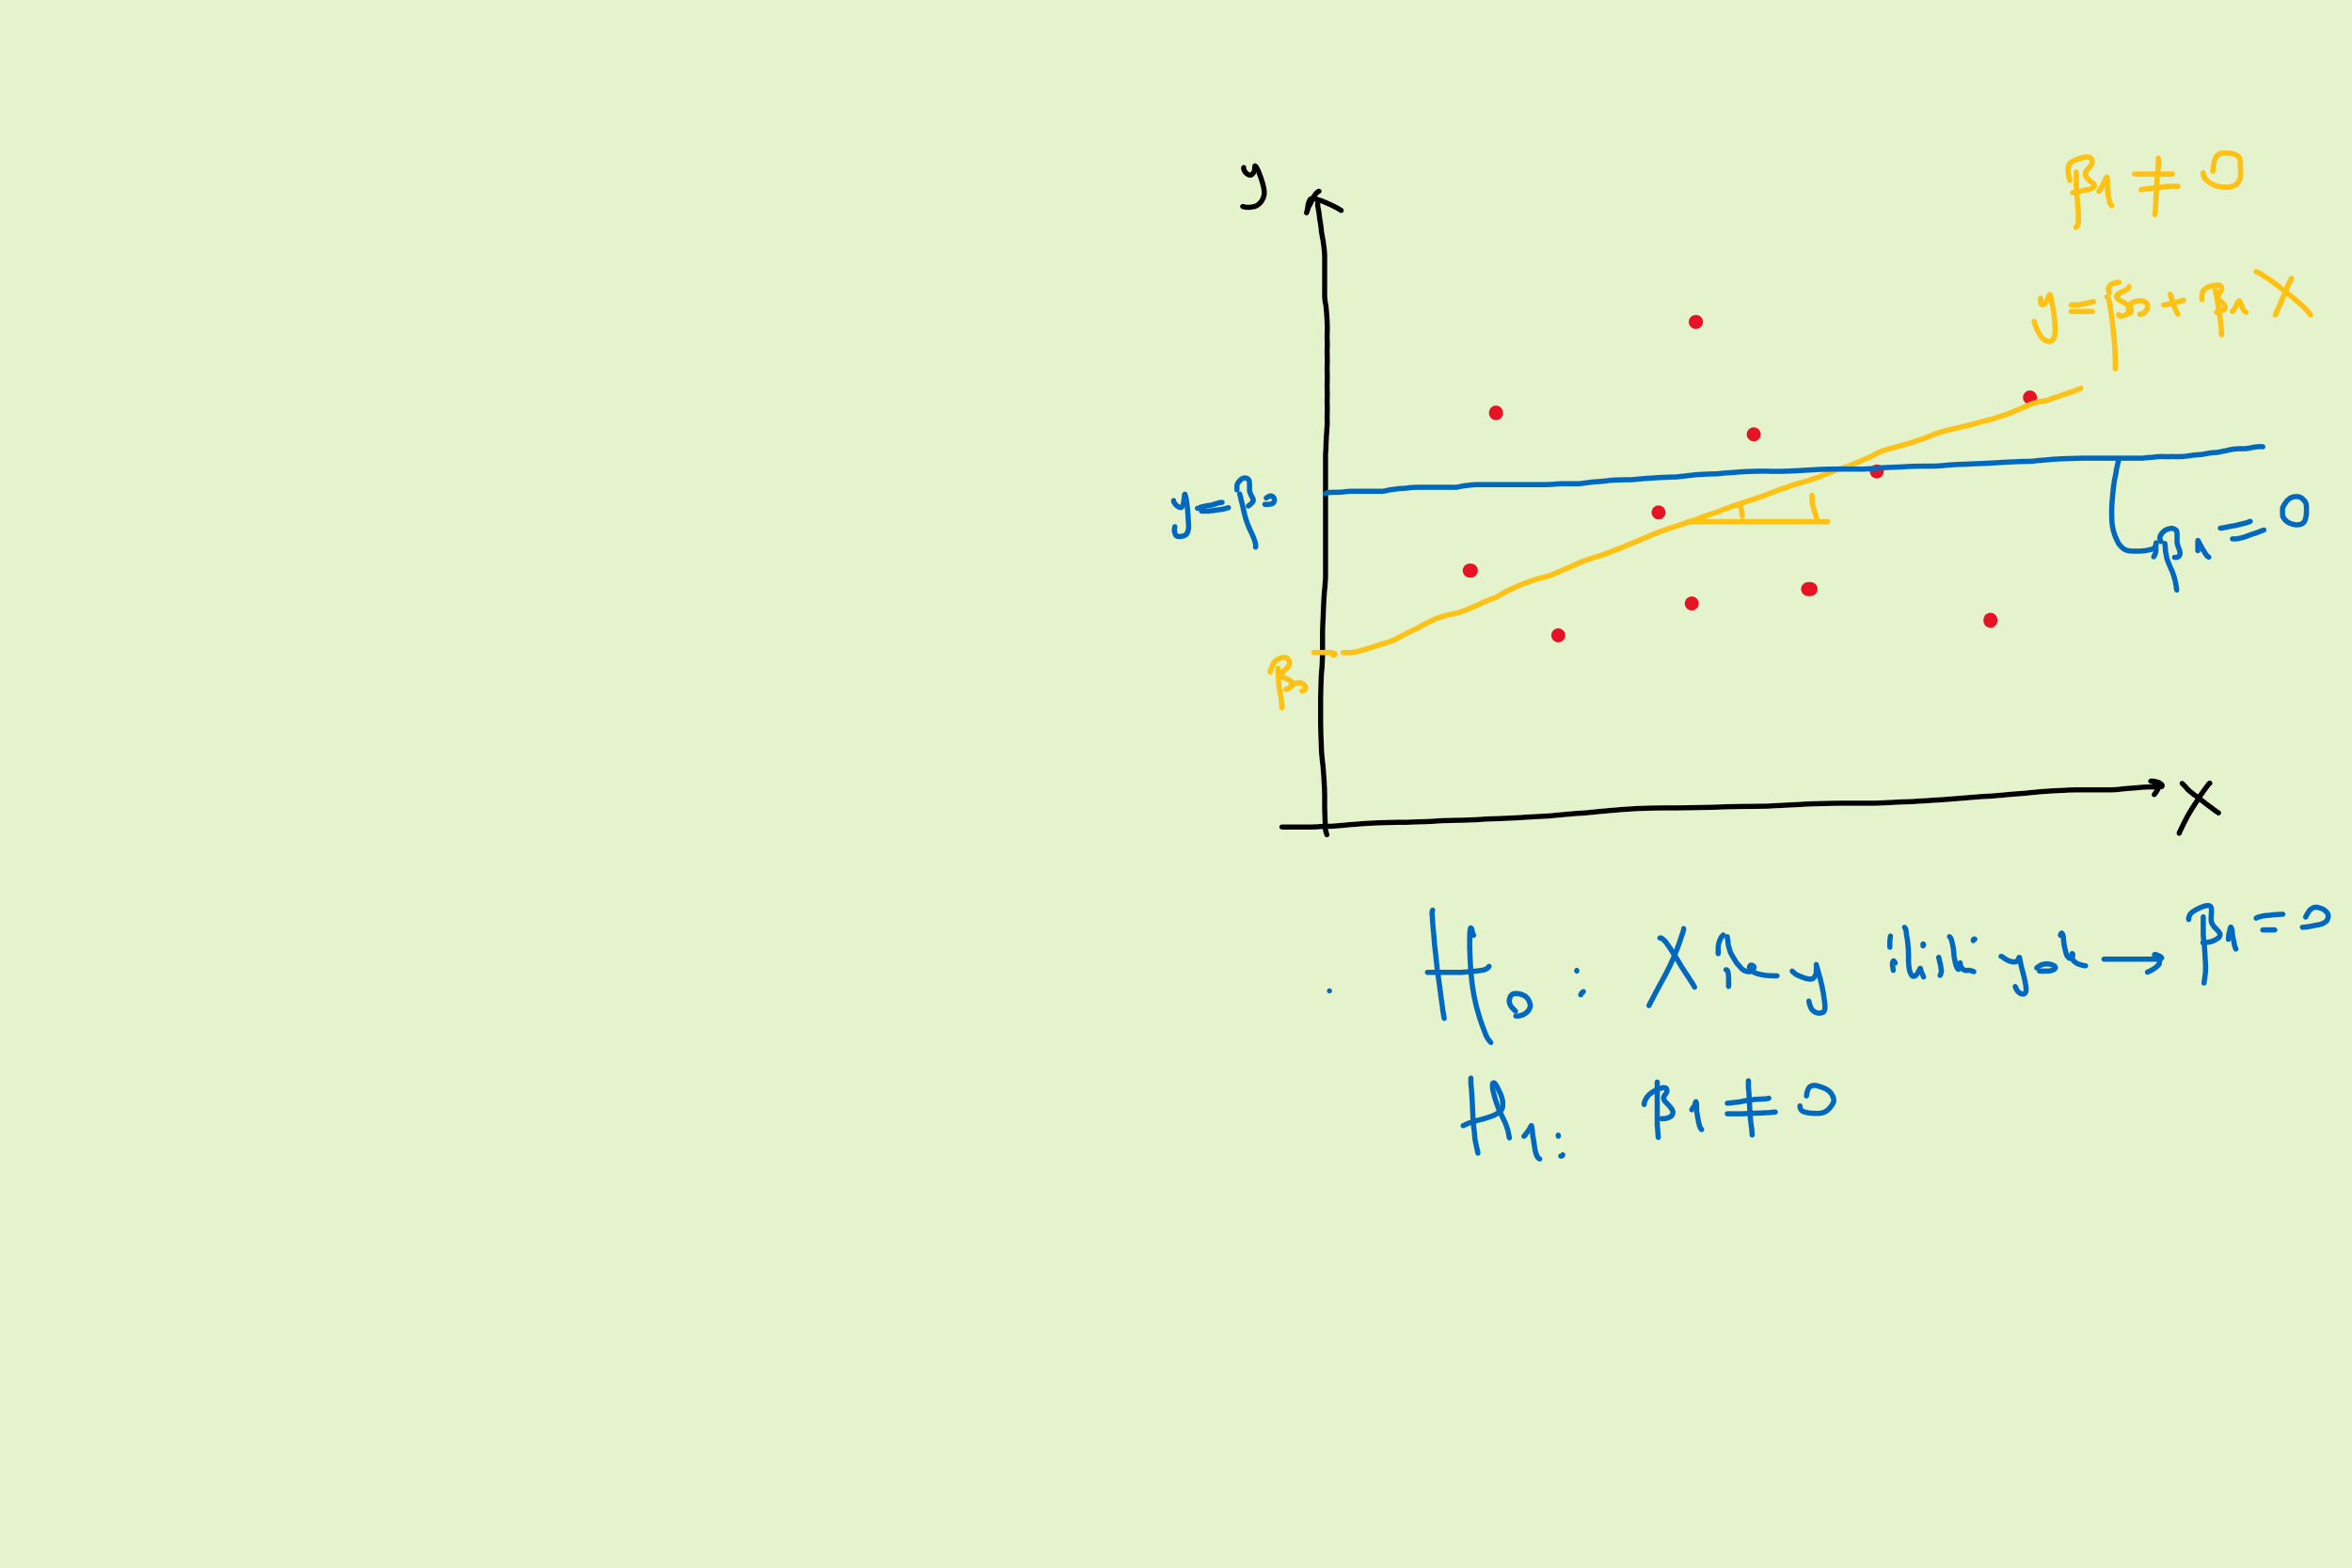 y
β₁ ≠ 0
y = β₀ + β₁ X
y = β₀
β₁ = 0
β₀
X
H₀ : X ile y ilişki yok → β₁ = 0
H₁ : β₁ ≠ 0